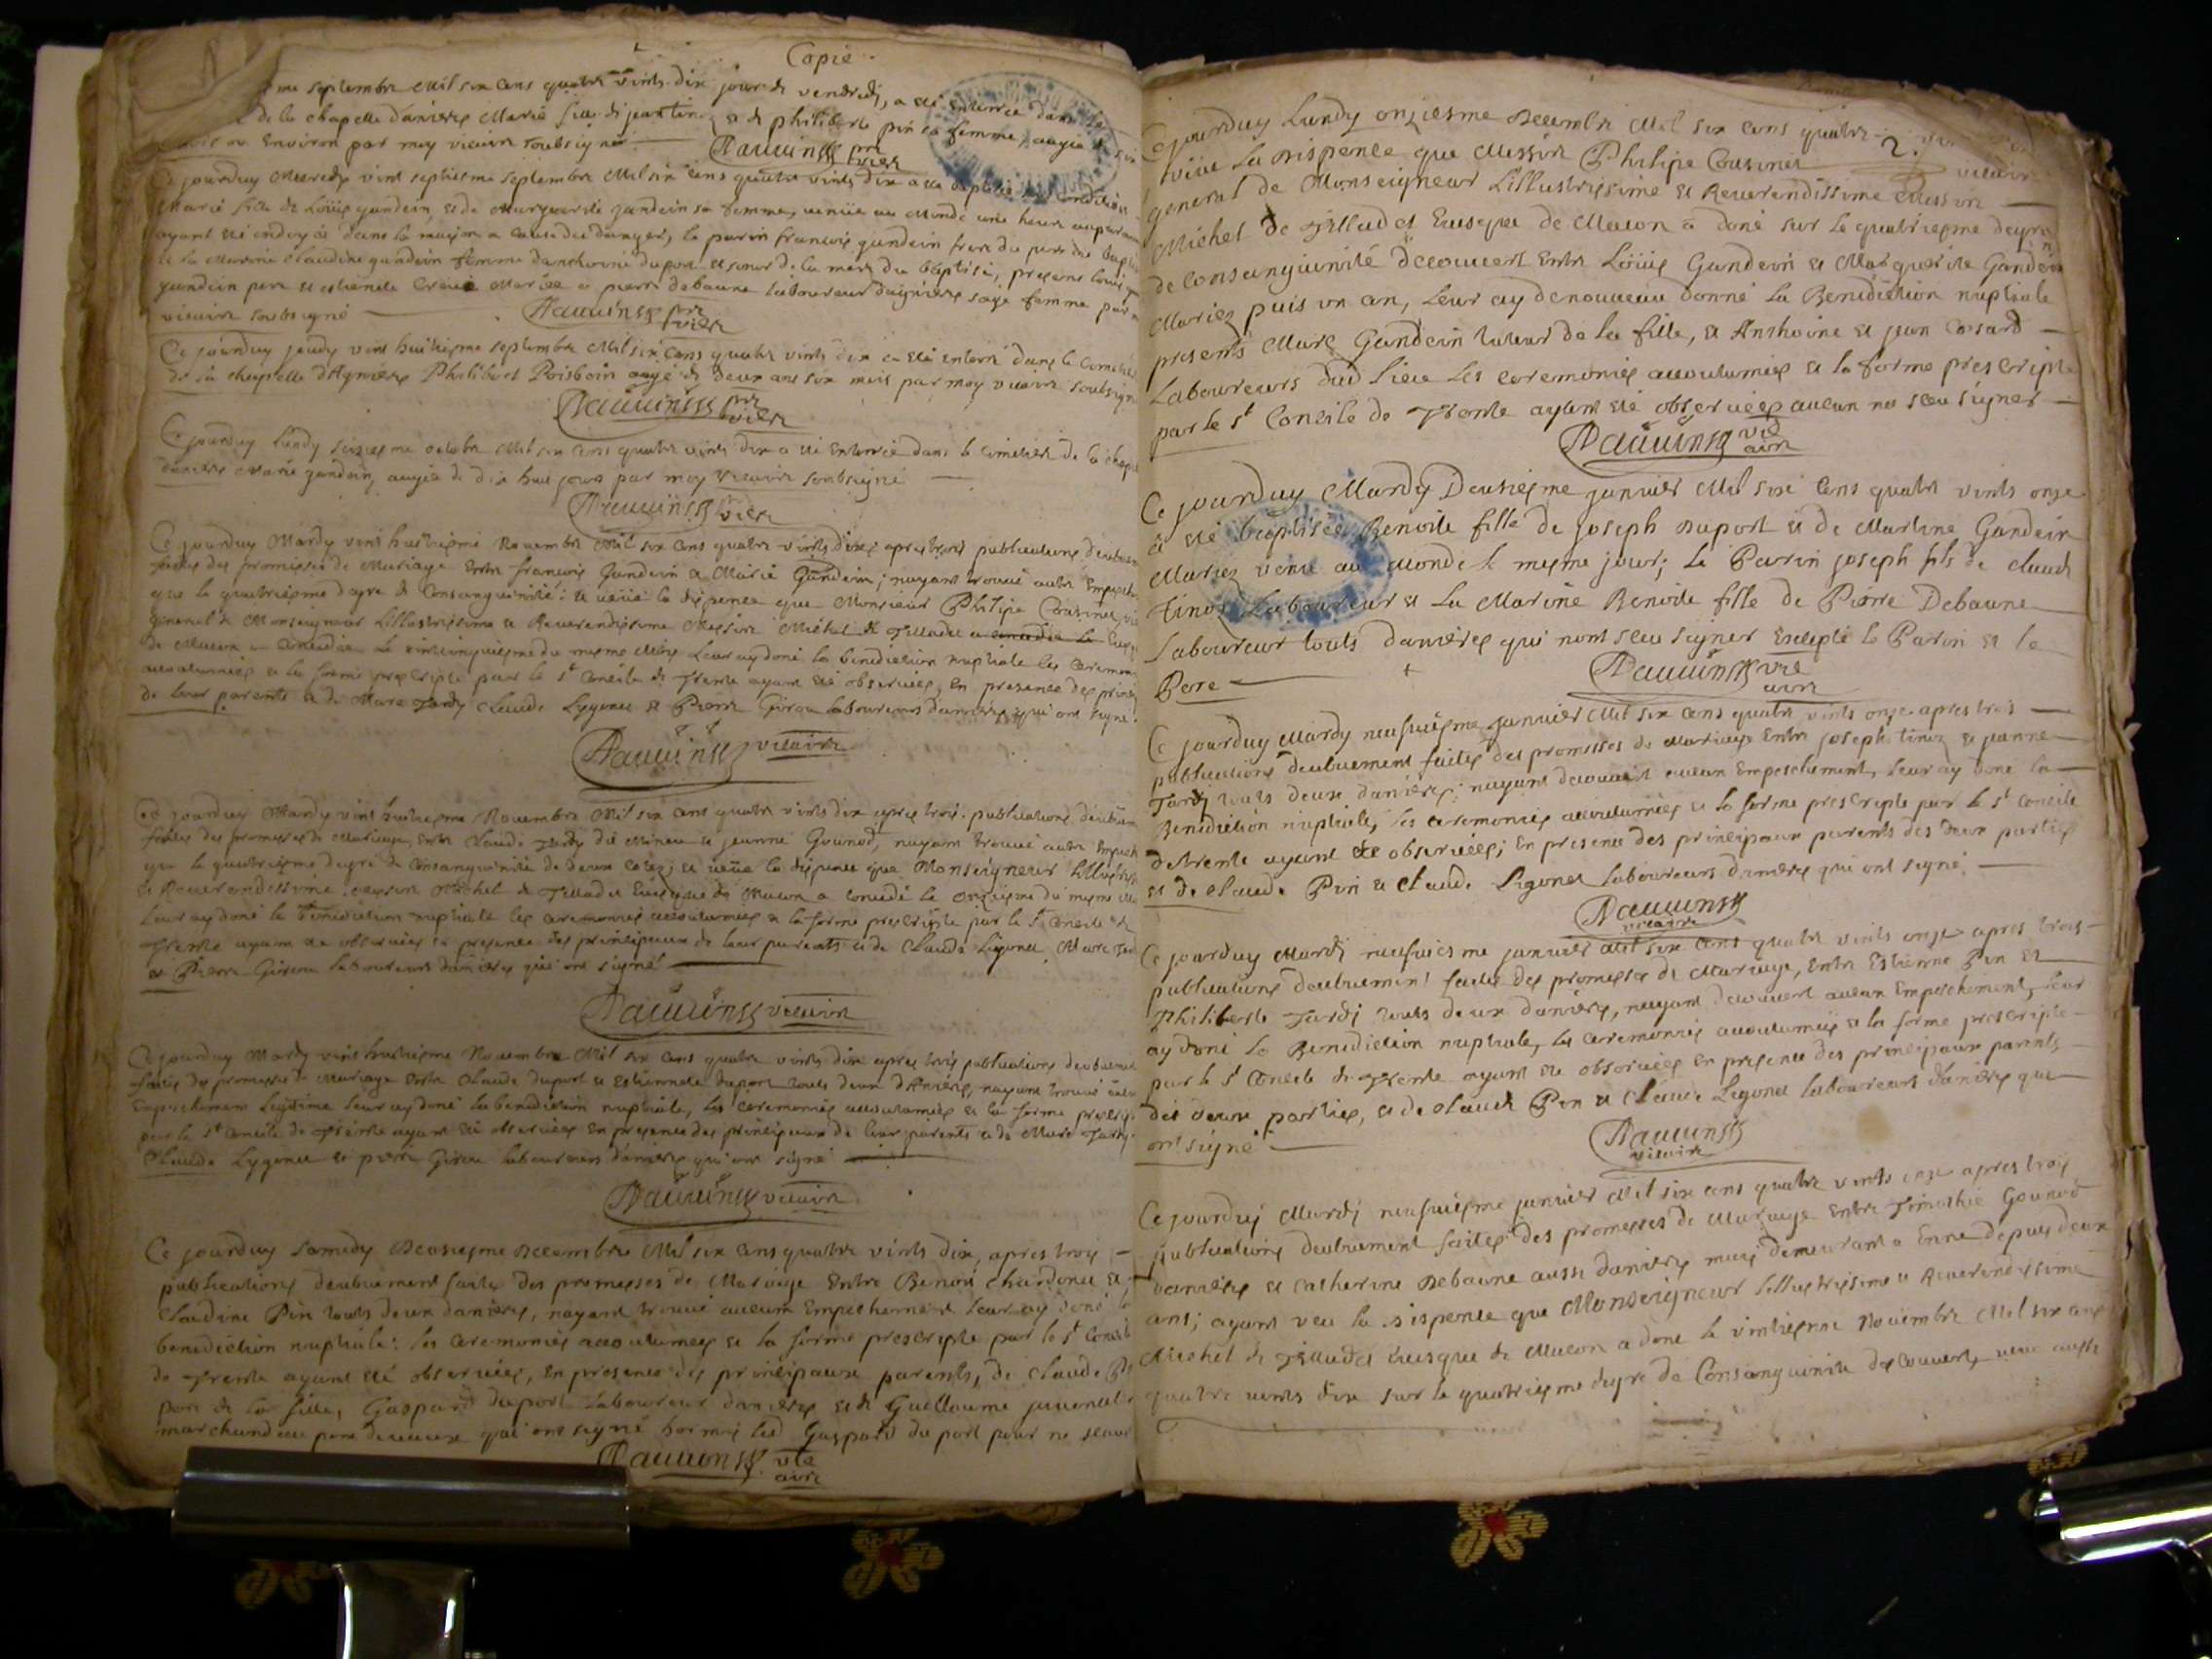 Copie
me septembre Mil six cens quatre vints dix jour de vendredi, a été enterrée dans
de la chapelle danieres Marie fille de jean tinoz et de philiberte pin sa femme, augée de six
mois ou Environ par moy vicaire soubsigné
Ce jourduy Mercredy vint septiesme septembre Mil six cens quatre vints dix a été baptisée
Marie fille de Loüis gandein et de Marguerite gandein sa femme, venüe au Monde une heure
ayant été ondoyée dans la maison a cause du danger, le parin francois gandein frere du pere
et la Marine Claudine gandein femme danthoine duport et soeur de la mere du baptisé, presens Louis
gandein pere et estienete Mariée a pierre debaune laboureur sage femme par
vicaire soubsigné
Ce jourduy jeudy vint huitiesme septembre Mil six cens quatre vints dix a été enterré dans le
de la chapelle dAgnieres Philibert Poisboin augé de deux ans six mois par moy vicaire soubsigné
Ce jourduy Lundy seziesme octobre Mil six cens quatre vints dix a été Enterrée dans le cimetiere de la
danieres Marie gandein augée de dix huit jours par moy vicaire soubsigné
Ce jourduy Mardy vint huitiesme Novembre Mil six cens quatre vints dix apres trois publications
faites des promesses de Mariage Entre francois Gandein et Marie Gandein; nayant trouvé autre
que le quatriesme degré de Consanguinité: et veüe la dispence que Monsieur Philipe Cousinet
general de Monseigneur Lillustrissime et Reverendissime Messire Michel de Tilladet
de Macon a concedée Le vintcinquiesme du mesme Mois Leur ay doné la benediction nuptiale les
acoutumées et la forme prescripte par le St Concile de Trente ayant été observées, En presence des
de leur parents et de Marc Tardy Claude Lygonet et Pierre Girou laboureurs danieres qui ont signé
vicaire
Ce jourduy Mardy vint huitiesme Novembre Mil six cens quatre vints dix apres trois publications
faites des promesses de Mariage Entre Claude Tardy dit Mineu et jeanne Gounod, nayant trouvé autre
que le quatriesme degré de Consanguinité de deux cotez; et veüe la dispence que Monseigneur
et Reverendissime Messire Michel de Tilladet Evesque de Macon a concedé le onziesme du mesme
Leur ay doné la benediction nuptiale les ceremonies acoutumées et la forme prescripte par le St Concile de
Trente ayant été observées en presence des principaux de leur parents et de Claude Ligonet, Marc
et Pierre Girou laboureurs danieres qui ont signé
vicaire
Ce jourduy Mardy vint huitiesme Novembre Mil six cens quatre vints dix apres trois publications
faites des promesses de Mariage Entre Claude duport et Estiennete duport touts deux dAnieres, nayant trouvé
Empeschement Legitime leur ay doné la benediction nuptiale, les ceremonies acoutumées et la forme
par le St Concile de Trente ayant été observées en presence des principaux de leur parents et de Marc Tardy
Claude Lygonet et pierre Girou laboureurs danieres qui ont signé
vicaire
Ce jourduy Samedy Deusiesme Decembre Mil six cens quatre vints dix, apres trois
publications deubuement faites des promesses de Mariage Entre Benoit Chardonet et
Claudine Pin touts deux danieres, nayant trouvé aucun Empechement leur ay doné la
benediction nuptiale: les ceremonies acoutumées et la forme prescripte par le St Concile
de Trente ayant été observées, En presence des principaux parents, de Claude
pere de la fille, Gaspard duport Laboureur danieres et de Guillaume
marchand au pont devaux qui ont signé hormis led Gaspard du port pour ne
2.
Ce jourduy Lundy onziesme Decembre Mil six cens quatre
veüe La Dispence que Messire Philipe Cousinet vicaire
general de Monseigneur Lillustrissime et Reverendissime Messire
Michel de Tilladet Evesque de Macon a doné sur Le quatriesme degré
de Consanguinité decouvert Entre Loüis Gandein et Marguerite Gandein
Mariez puis un an, Leur ay denouveau donné La Benediction nuptiale
presents Marc Gandein tuteur de la fille, et Anthoine et jean Cosard
Laboureurs dud lieu Les ceremonies acoutumées et la forme prescripte
par le St Concile de Trente ayant été observées aucun na sceu signer
Ce jourduy Mardy Deusiesme janvier Mil six cens quatre vints onze
a été baptisée Benoite fille de joseph Duport et de Martine Gandein
Mariez venue au Monde le mesme jour; Le Parin joseph fils de claude
Tinoz Laboureur et La Marine Benoite fille de Pierre Debaune
Laboureur touts danieres qui nont sceu signer Excepté le Parin et le
Pere
Ce jourduy Mardy neufuiesme janvier Mil six cens quatre vints onze apres trois
publications deubuement faites des promesses de Mariage Entre joseph tinoz et jeanne
Tardy touts deux danieres; nayant decouvert aucun Empeschement, leur ay doné la
Benediction nuptiale, les ceremonies acoutumées et la forme prescripte par le St Concile
detrente ayant été observées; En presence des principaux parents des deux parties
et de claude Pin et claude Ligonet laboureurs danieres qui ont signé
vicaire
Ce jourduy Mardi neufuiesme janvier Mil six cens quatre vints onze apres trois
publications deubuement faites des promesses de Mariage, Entre Estienne Pin et
Philiberte Tardi touts deux danieres, nayant decouvert aucun Empeschement, leur
ay doné la Benediction nuptiale, les ceremonies acoutumées et la forme prescripte
par le St Concile de Trente ayant été observées En presence des principaux parents
des deux parties, et de claude Pin et Claude Ligonet laboureurs danieres qui
ont signé
vicaire
Ce jourduy Mardi neufuiesme janvier Mil six cens quatre vints onze apres trois
publications deubuement faites des promesses de Mariage Entre Timothée Gounod
danieres et Catherine Debaune aussi danieres mais demeurant a Enne depuis deux
ans; ayant veu la dispence que Monseigneur Lillustrissime et Reverendissime
Michel de Tilladet Evesque de Macon a doné le vintiesme Novembre Mil six cens
quatre vints dix sur le quatriesme degré de Consanguinité decouvert, veue aussi